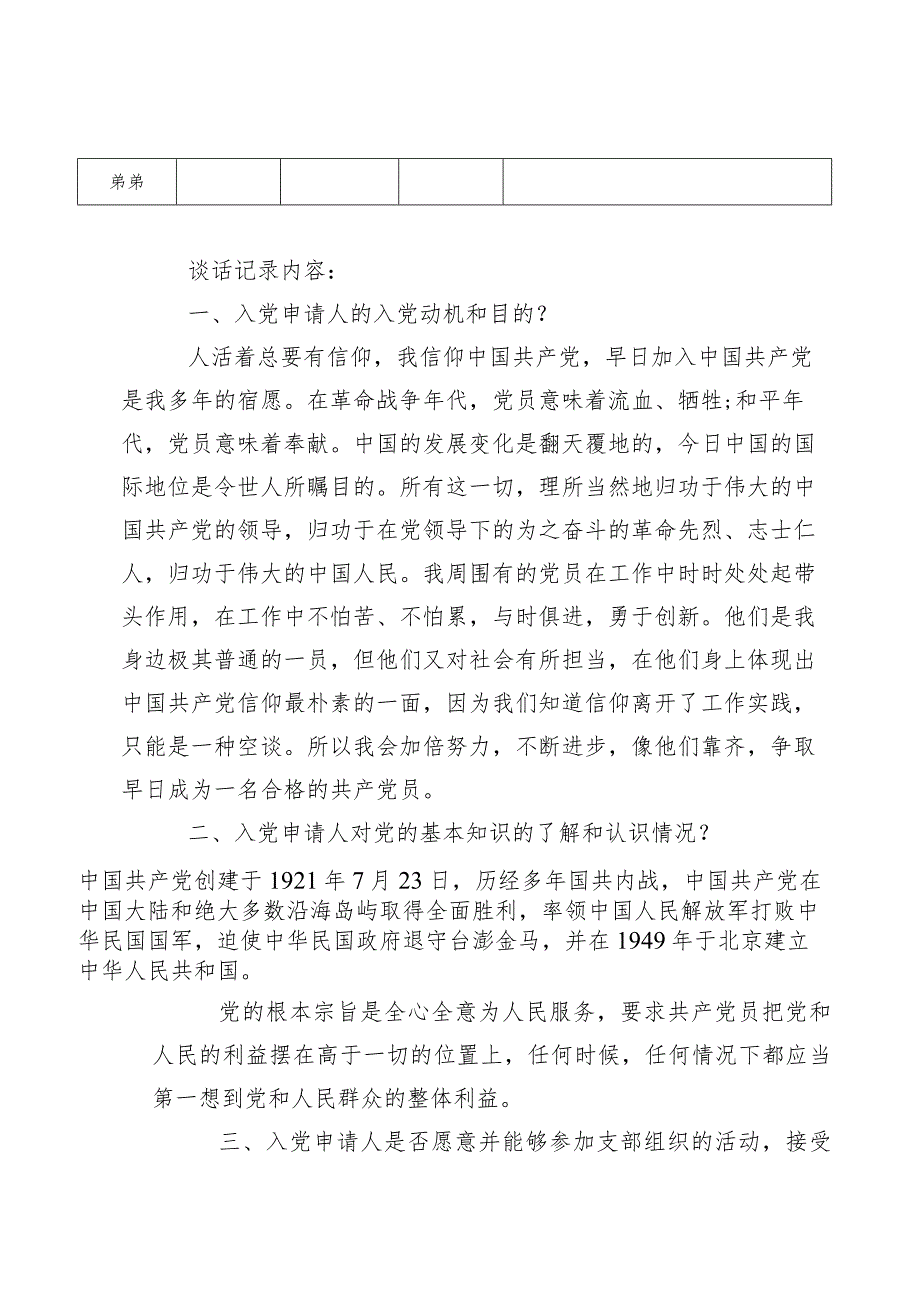 弟弟
谈话记录内容：
一、入党申请人的入党动机和目的？
人活着总要有信仰，我信仰中国共产党，早日加入中国共产党
是我多年的宿愿。在革命战争年代，党员意味着流血、牺牲;和平年
代，党员意味着奉献。中国的发展变化是翻天覆地的，今日中国的国
际地位是令世人所瞩目的。所有这一切，理所当然地归功于伟大的中
国共产党的领导，归功于在党领导下的为之奋斗的革命先烈、志士仁
人，归功于伟大的中国人民。我周围有的党员在工作中时时处处起带
头作用，在工作中不怕苦、不怕累，与时俱进，勇于创新。他们是我
身边极其普通的一员，但他们又对社会有所担当，在他们身上体现出
中国共产党信仰最朴素的一面，因为我们知道信仰离开了工作实践，
只能是一种空谈。所以我会加倍努力，不断进步，像他们靠齐，争取
早日成为一名合格的共产党员。
二、入党申请人对党的基本知识的了解和认识情况？
中国共产党创建于 1921 年 7 月 23 日，历经多年国共内战，中国共产党在
中国大陆和绝大多数沿海岛屿取得全面胜利，率领中国人民解放军打败中
华民国国军，迫使中华民国政府退守台澎金马，并在 1949 年于北京建立
中华人民共和国。
党的根本宗旨是全心全意为人民服务，要求共产党员把党和
人民的利益摆在高于一切的位置上，任何时候，任何情况下都应当
第一想到党和人民群众的整体利益。
三、入党申请人是否愿意并能够参加支部组织的活动，接受